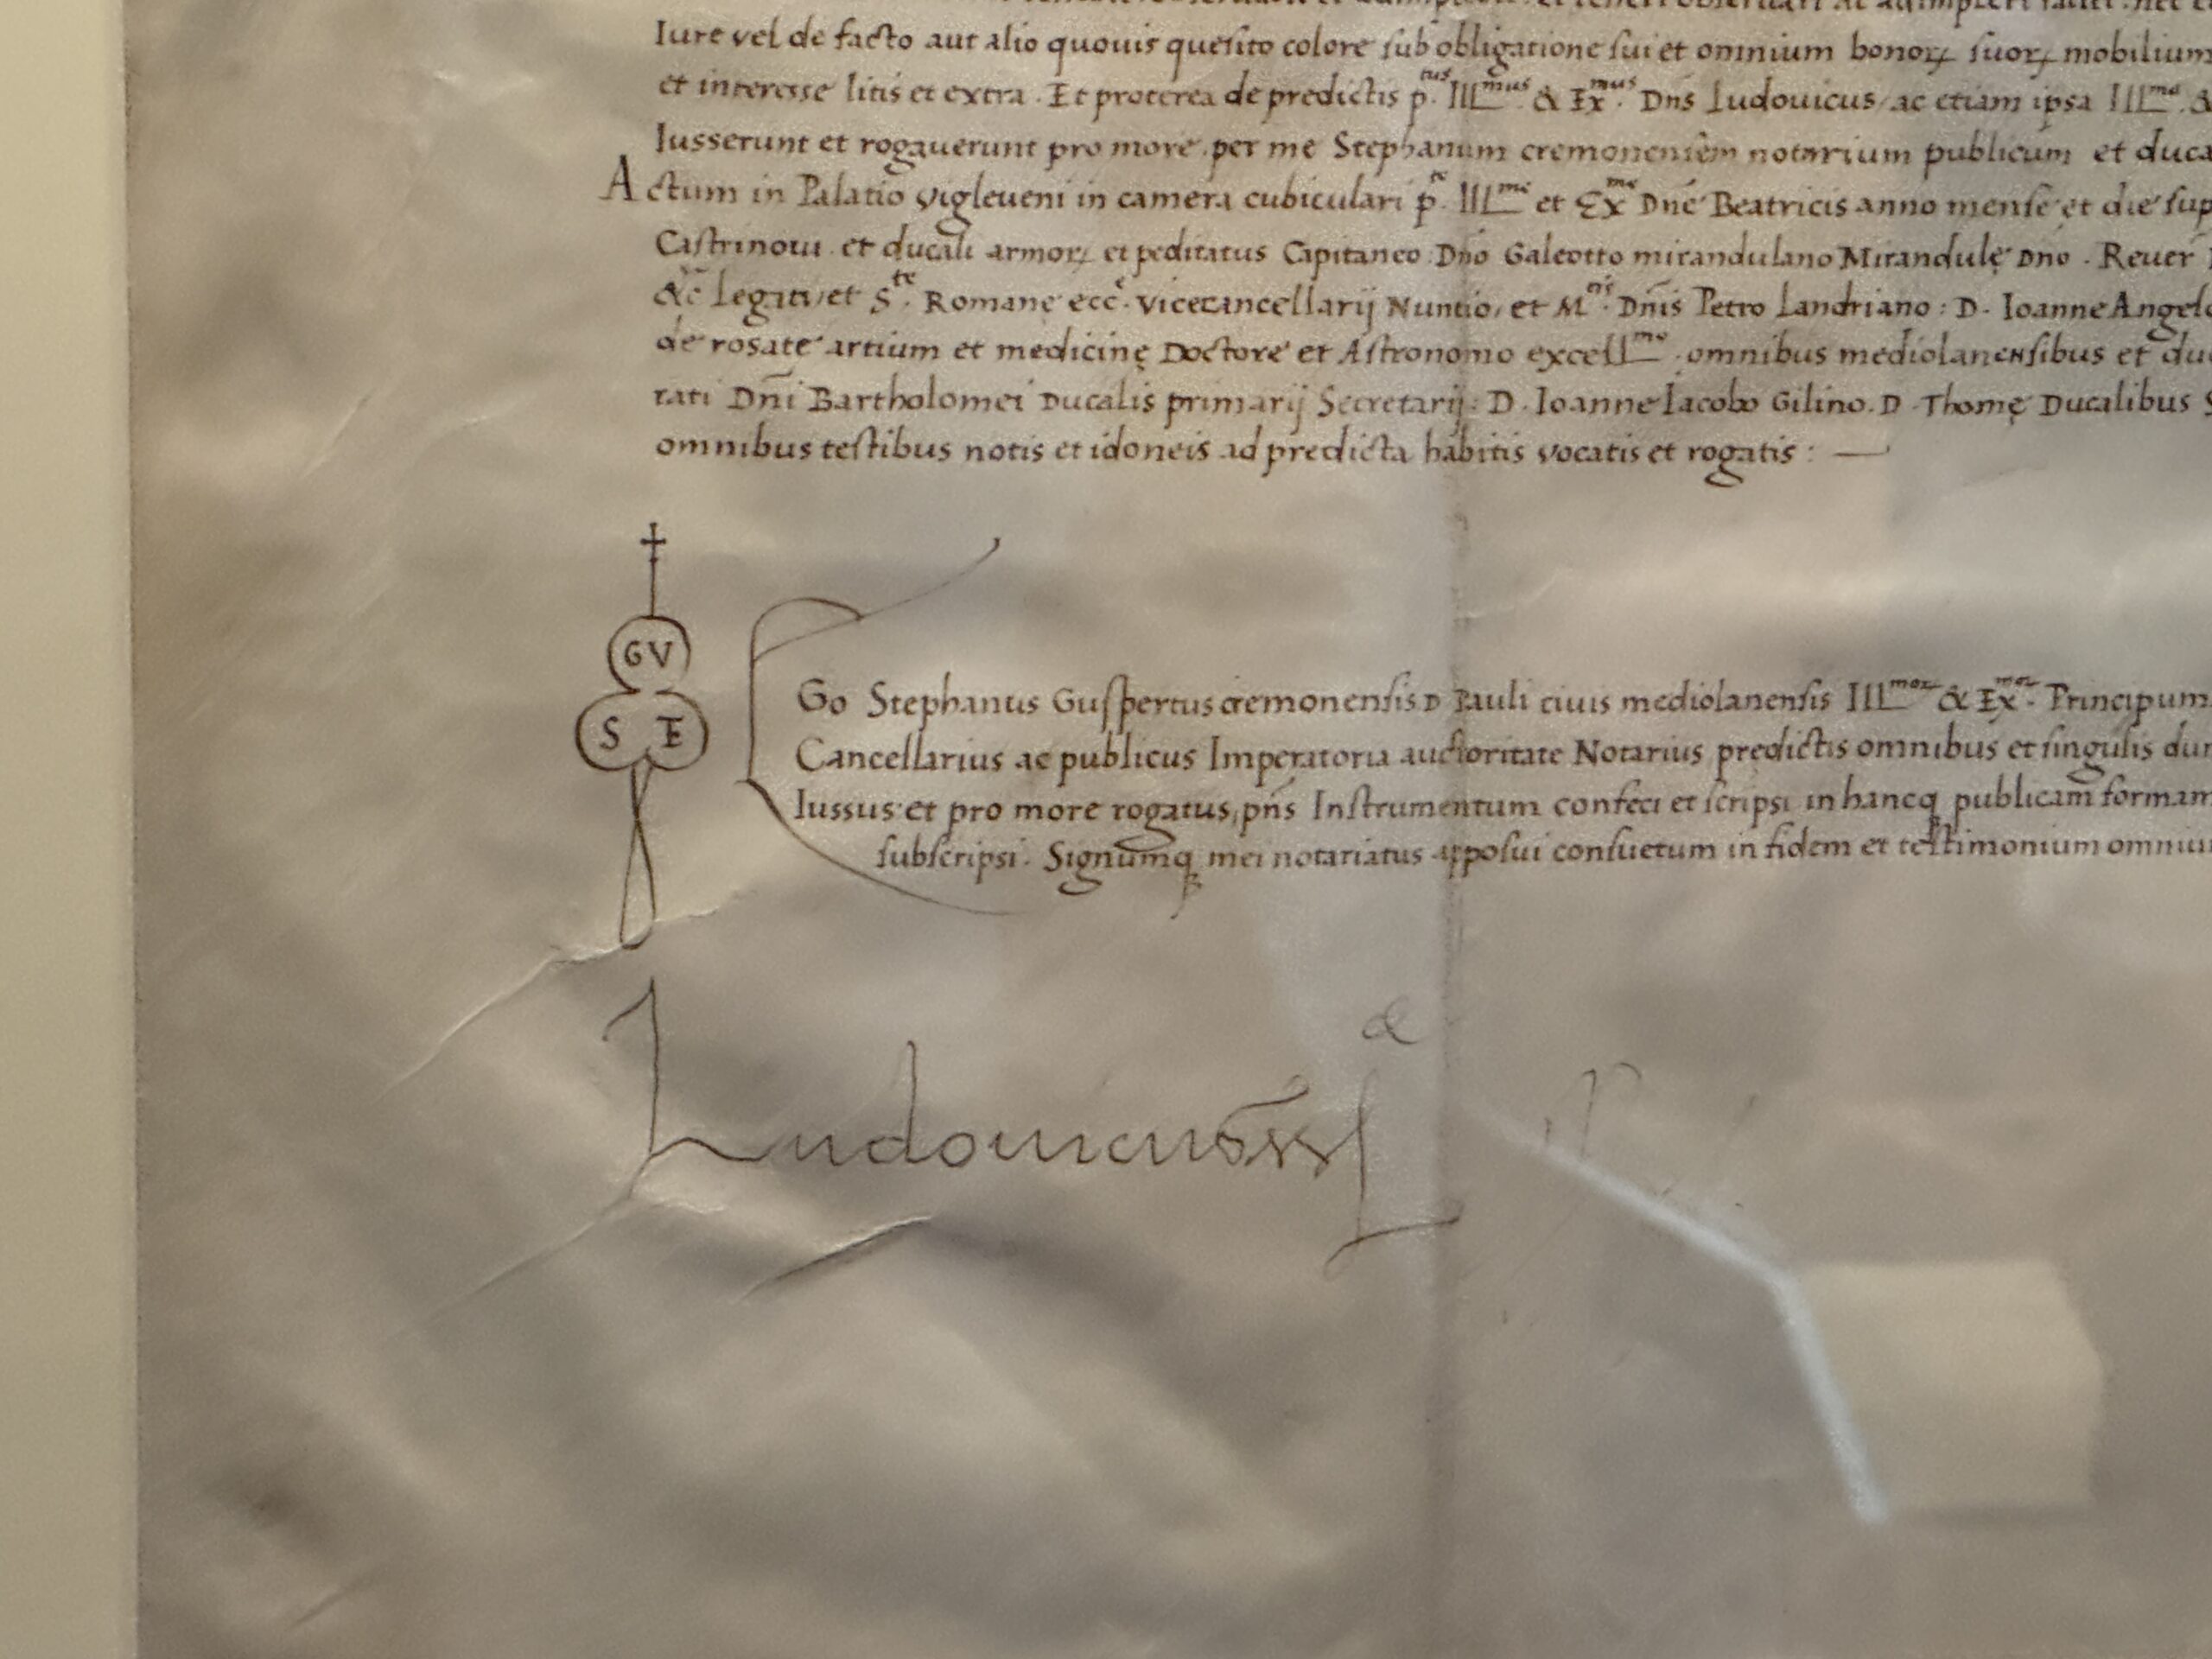 Iure vel de facto aut alio quouis quesito colore sub obligatione sui et omnium bonoꝝ suoꝝ mobilium
et interesse litis et extra . Et proterea de predictis p.^tus Ill^mus. & Ex^mus. Dn̄s Ludouicus, ac etiam ipsa Ill^ma. &
Iusserunt et rogauerunt pro more . per me Stephanum cremonensem notarium publicum et duca
Actum in Palatio Vigleueni in camera cubiculari p.^te Ill^me et Ex^me Dnē Beatricis anno mense et die sup
Castrinoui . et ducali armoꝝ et peditatus Capitaneo : Dnō Galeotto mirandulano Mirandulę Dnō . Reuer
&c̄ Legati, et S.^te Romane ecc̄. Vicecancellarij Nuntio, et M^cis. Dn̄is Petro Landriano : D. Ioanne Angelo
de rosate artium et medicinę Doctore et Astronomo excell^mo . omnibus mediolanensibus et du
rati Dn̄i Bartholomei Ducalis primarij Secretarij : D. Ioanne Iacobo Gilino . D. Thomę Ducalibus S
omnibus testibus notis et idoneis ad predicta habitis vocatis et rogatis : —
GV
S T
EGo Stephanus Guspertus cremonensis D Pauli ciuis mediolanensis Ill^moꝝ & Ex^moꝝ. Principum
Cancellarius ac publicus Imperatoria auctoritate Notarius predictis omnibus et singulis dum
Iussus et pro more rogatus, pn̄s Instrumentum confeci et scripsi in hancq publicam formam
subscripsi . Signumq mei notariatus apposui consuetum in fidem et testimonium omnium
Ludouicus